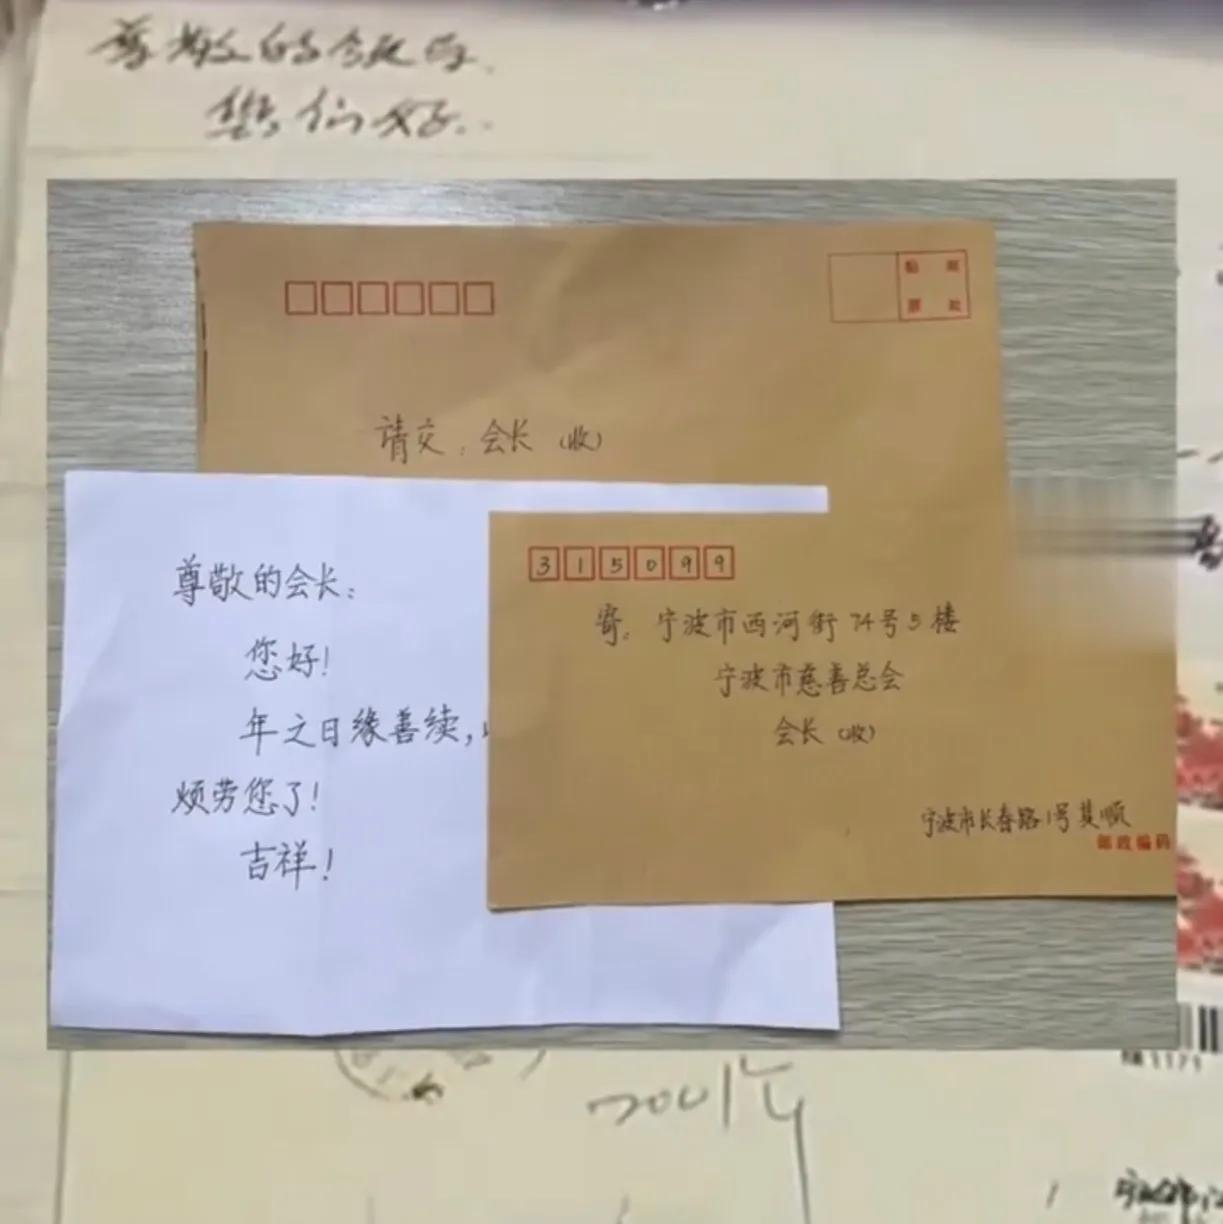 尊敬的领导.
您们好..
粘 邮
票 处
请交：会长（收）
尊敬的会长：
您好！
年之日缘善续，
烦劳您了！
吉祥！
315099
寄：宁波市西河街74号5楼
宁波市慈善总会
会长（收）
宁波市长春路1号其顺
邮政编码
2001年